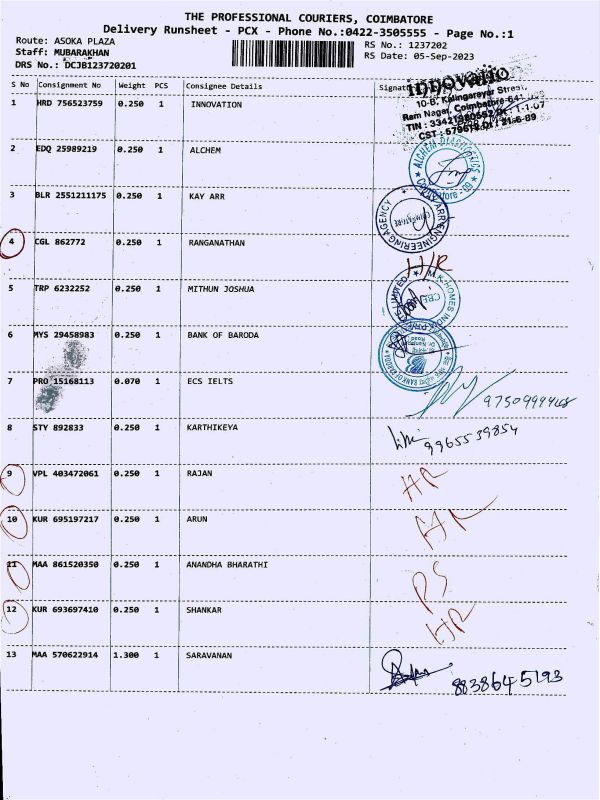 THE PROFESSIONAL COURIERS, COIMBATORE
Delivery Runsheet - PCX - Phone No.:0422-3505555 - Page No.:1
Route: ASOKA PLAZA
RS No.: 1237202
Staff: MUBARAKHAN
RS Date: 05-Sep-2023
DRS No.: DCJB123720201
S No Consignment No Weight PCS Consignee Details Signat
1 HRD 756523759 0.250 1 INNOVATION
10-B, Kalingarayar Street,
Ram Nagar, Coimbatore-641
2 EDQ 25989219 0.250 1 ALCHEM
ALCHEM DIAGNOSTICS
3 BLR 2551211175 0.250 1 KAY ARR
KAY ARR ENGINEERING AGENCY
COIMBATORE
4 CGL 862772 0.250 1 RANGANATHAN
H/R
5 TRP 6232252 0.250 1 MITHUN JOSHUA
M.K. HOMES INDIA PRIVATE LIMITED
CBE
6 MYS 29458983 0.250 1 BANK OF BARODA
BANK OF BARODA
7 PRO 15168113 0.070 1 ECS IELTS
8 STY 892833 0.250 1 KARTHIKEYA
9965539854
9 VPL 403472061 0.250 1 RAJAN
HR
10 KUR 695197217 0.250 1 ARUN
HR
11 MAA 861520350 0.250 1 ANANDHA BHARATHI
PS
12 KUR 693697410 0.250 1 SHANKAR
HR
13 MAA 570622914 1.300 1 SARAVANAN
8838645193